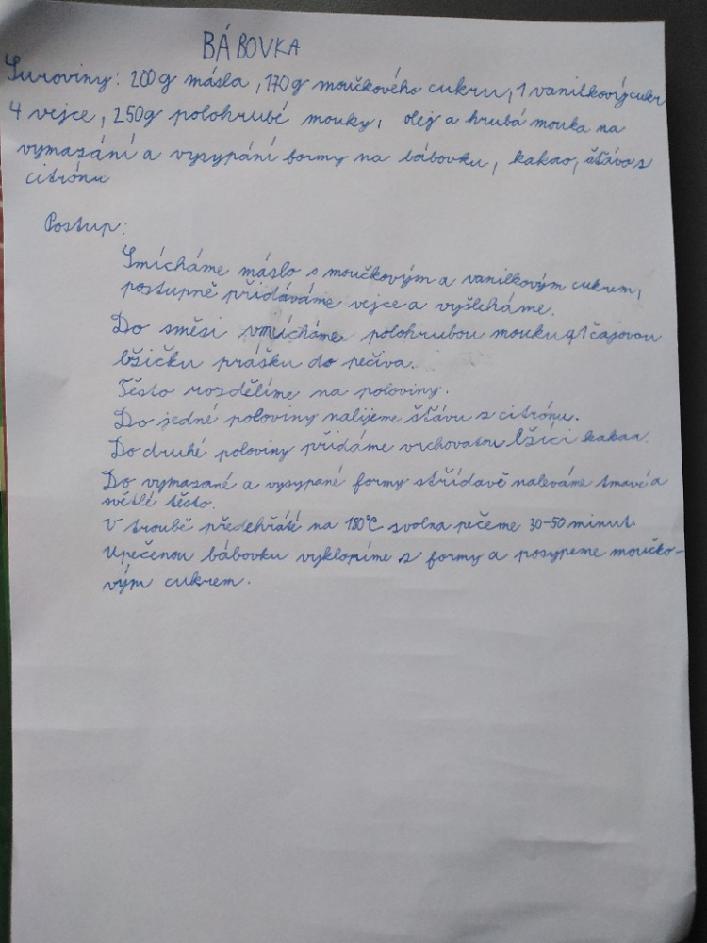 BÁBOVKA
Suroviny: 200g másla, 170g moučkového cukru, 1 vanilkový cukr
4 vejce, 250g polohrubé mouky, olej a hrubá mouka na
vymazání a vysypání formy na bábovku, kakao, šťáva z
citrónu
Postup:
Smícháme máslo s moučkovým a vanilkovým cukrem,
postupně přidáváme vejce a vyšleháme.
Do směsi vmícháme polohrubou mouku a 1 čajovou
lžičku prášku do pečiva.
Těsto rozdělíme na poloviny.
Do jedné poloviny nalijeme šťávu z citrónu.
Do druhé poloviny přidáme vrchovatou lžíci kakaa.
Do vymazané a vysypané formy střídavě naleváme tmavé a
světlé těsto.
V troubě předehřáté na 180°C zvolna pečeme 30-50 minut
Upečenou bábovku vyklopíme z formy a posypeme moučko-
vým cukrem.